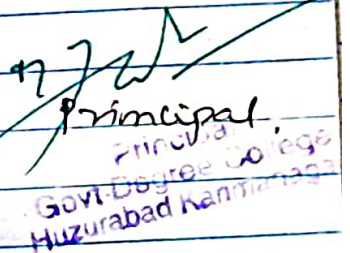 Principal,
Principal
Govt-Degree College
Huzurabad Karimnagar